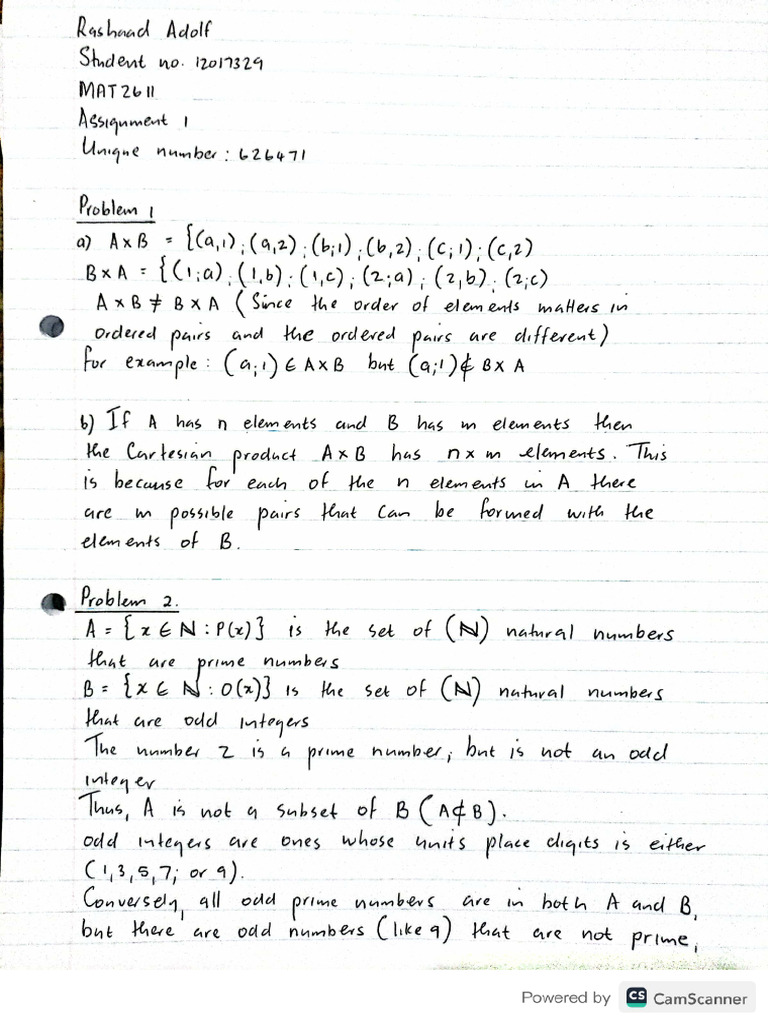 Rashaad Adolf
Student no. 12017329
MAT2611
Assignment 1
Unique number: 626471
Problem 1
a) A×B = {(a,1); (a,2); (b;1); (b,2); (c;1); (c,2)
B×A = {(1;a); (1,b); (1,c); (2;a); (2,b); (2;c)
A×B ≠ B×A (Since the order of elements matters in
ordered pairs and the ordered pairs are different)
for example: (a;1) ∈ A×B but (a;1) ∉ B×A
b) If A has n elements and B has m elements then
the Cartesian product A×B has n×m elements. This
is because for each of the n elements in A there
are m possible pairs that can be formed with the
elements of B.
Problem 2.
A = {x ∈ ℕ : P(x)} is the set of (ℕ) natural numbers
that are prime numbers
B = {x ∈ ℕ : O(x)} is the set of (ℕ) natural numbers
that are odd integers
The number 2 is a prime number, but is not an odd
integer
Thus, A is not a subset of B (A⊄B).
odd integers are ones whose units place digits is either
(1,3,5,7; or 9).
Conversely, all odd prime numbers are in both A and B,
but there are odd numbers (like 9) that are not prime,
Powered by CS CamScanner